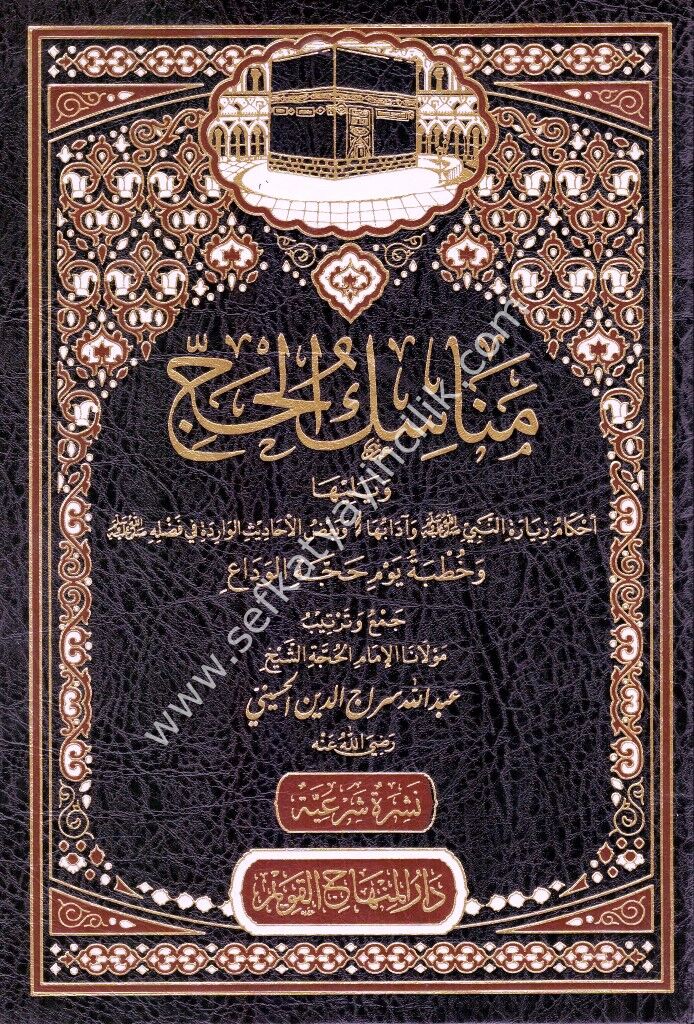 مَنَاسِكُ الْحَجِّ
وَيَلِيْهَا
أَحْكَامُ زِيَارَةِ النَّبِيِّ ﷺ وَآدَابُهَا وَبَعْضُ الأَحَادِيْثِ الوَارِدَةِ فِي فَضْلِهِ ﷺ
وَخُطْبَةُ يَوْمِ حَجَّةِ الوَدَاعِ
جَمْعُ وَتَرْتِيْبُ
مَوْلَانَا الإِمَامِ الحُجَّةِ الشَّيْخِ
عبد الله سراج الدين الحسيني
رَضِيَ اللهُ عَنْه
نَشْرَةٌ شَرْعِيَّةٌ
دَارُ المِنْهَاجِ القَوِيْمِ
www.sefkatyayincilik.com